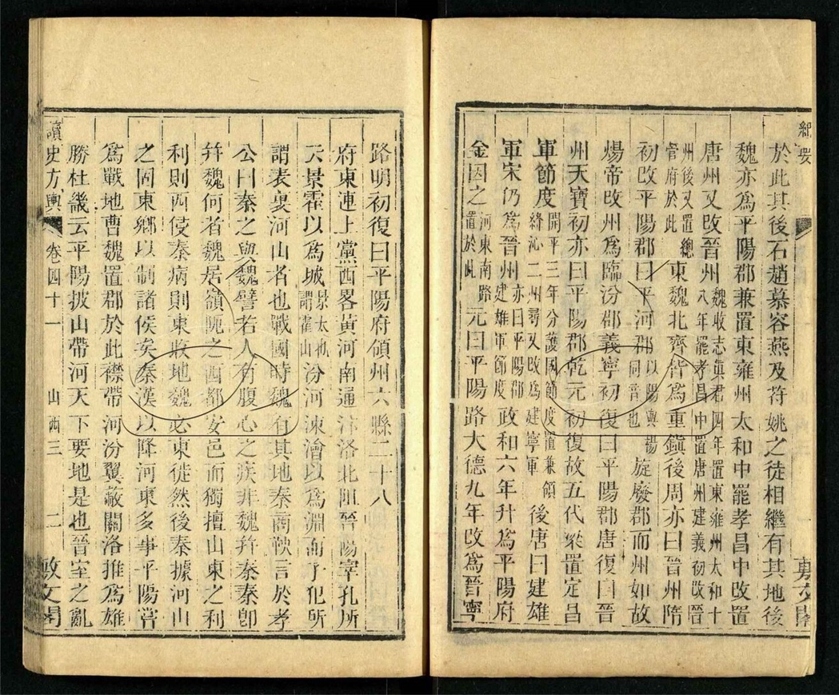 紀要
敷文閣
於此其後石趙慕容燕及苻姚之徒相繼有其地後
魏亦爲平陽郡兼置東雍州太和中罷孝昌中改置
唐州又改晉州魏收志真君四年置東雍州太和十八年罷孝昌中置唐州建義初改晉
州後又置總管府於此東魏北齊皆爲重鎮後周亦曰晉州隋
初改平陽郡曰平河郡以陽與楊同音也旋廢郡而州如故
煬帝改州爲臨汾郡義寧初復曰平陽郡唐復曰晉
州天寶初亦曰平陽郡乾元初復故五代梁置定昌
軍節度開平三年分護國節度置兼領絳沁二州尋又改爲建寧軍後唐曰建雄
軍宋仍爲晉州亦曰平陽郡建雄軍節度政和六年升爲平陽府
金因之河東南路置於此元曰平陽路大德九年改爲晉寧
路明初復曰平陽府領州六縣二十八
府東連上黨西畧黃河南通汴洛北阻晉陽宰孔所
云景霍以爲城景太也謂霍山汾河涑澮以爲淵而子犯所
謂表裏河山者也戰國時魏有其地秦商鞅言於孝
公曰秦之與魏譬若人有腹心之疾非魏并秦秦卽
并魏何者魏居嶺阨之西都安邑而獨擅山東之利
利則西侵秦病則東收地魏必東徙然後秦據河山
之固東鄉以制諸侯矣秦漢以降河東多事平陽嘗
爲戰地曹魏置郡於此襟帶河汾翼蔽關洛推爲雄
勝杜畿云平陽披山帶河天下要地是也晉室之亂
讀史方輿
卷四十一
山西三
二
敷文閣